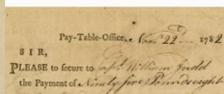 Pay-Table-Office, Nov. 22d 1782
SIR,
PLEASE to secure to Capt. William Judd
the Payment of Ninety five Pounds eight